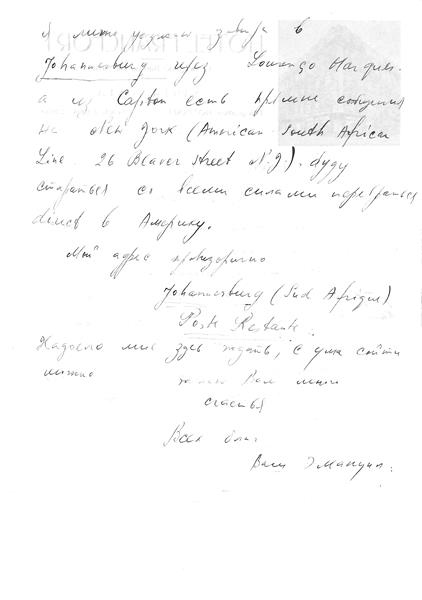 я завтра в
Johannesburg через Lourenço Marques.
а из Capton есть прямые сообщения
на New York (American South African
Line. 26 Beaver Street N.Y.). буду
стараться со всеми силами перебраться
в Америку.
Мой адрес провизорично
Johannesburg (Sud Afrique)
Poste Restante.
Надоело мне здесь ждать, с ума сойти
можно желаю Вам много
счастья
Всех благ
Ваш